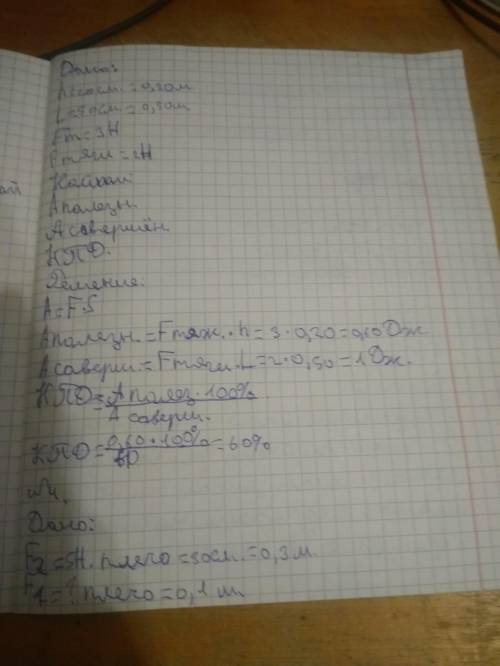 Дано:
h=20см.=0,20м
L=50см=0,50м
Fт=3Н
Fтяги=2Н
Найти:
А полезн.
А совершён.
КПД.
Решение.
A=F·S
А полезн.=Fтяж.·h=3·0,20=0,60Дж
А соверш.=Fтяги.L=2·0,50=1Дж.
КПД=А полез·100%
А соверш.
КПД=0,60·100%=60%
№4.
Дано:
F2=5Н. плечо=30см.=0,3м.
F1=? плечо=0,1м
ой